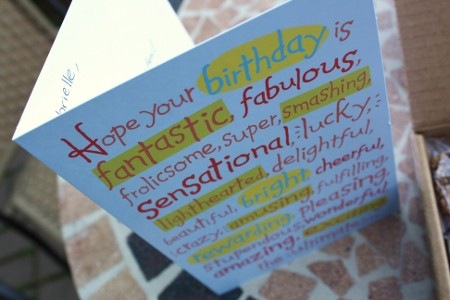 Hope your birthday is
fantastic, fabulous,
frolicsome, super, smashing,
sensational, lucky,
lighthearted, delightful,
beautiful, bright, cheerful,
crazy, amusing, fulfilling,
rewarding, pleasing,
stupendous, wonderful,
amazing,
the ultimate